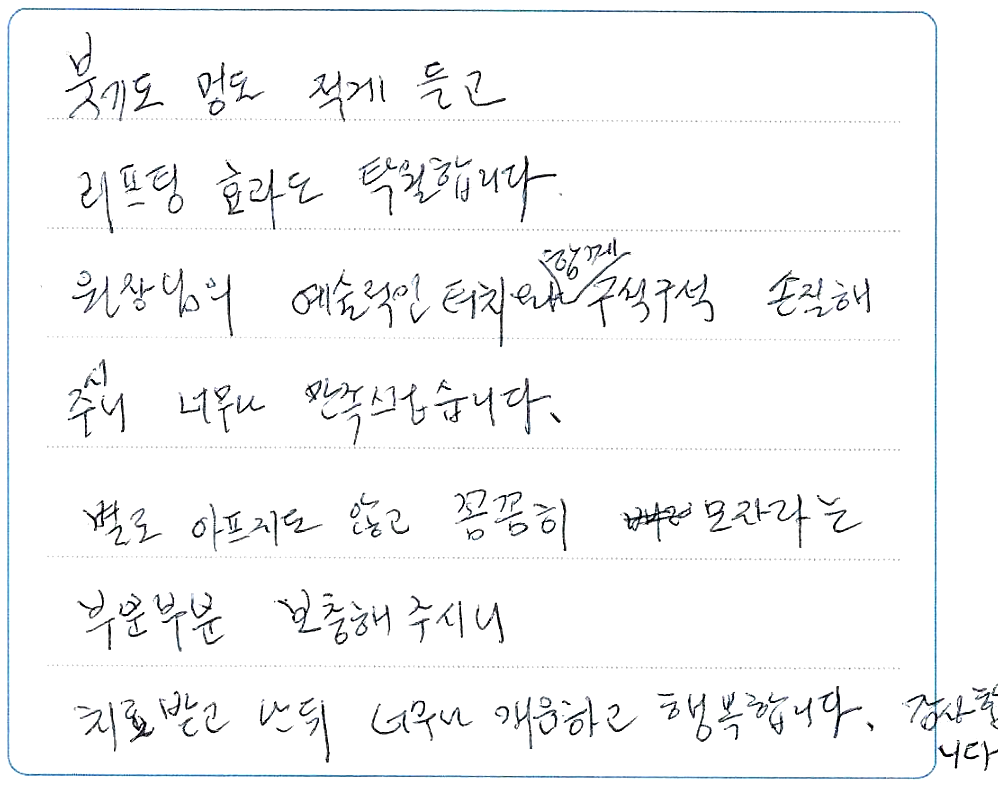 붓기도 멍도 적게 들고
리프팅 효과도 탁월합니다.
원장님의 예술적인 터치와 함께 구석구석 손질해
주시니 너무나 만족스럽습니다.
별로 아프지도 않고 꼼꼼히 모자라는
부분부분 보충해 주시니
치료받고 난 뒤 너무나 개운하고 행복합니다. 감사합
니다